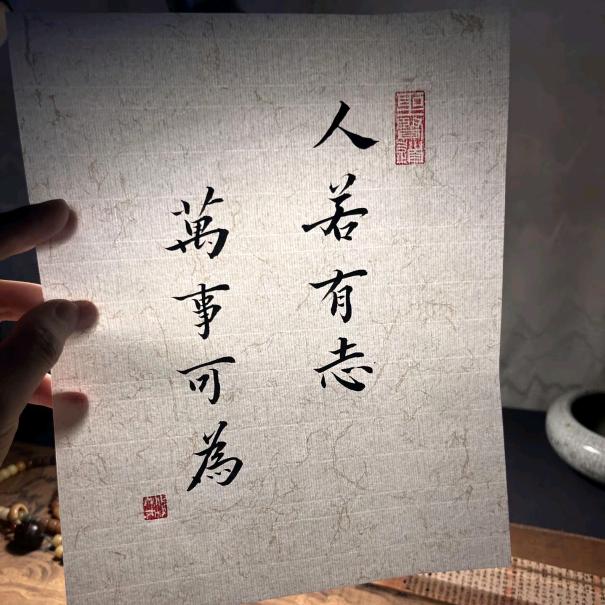 人若有志
萬事可為